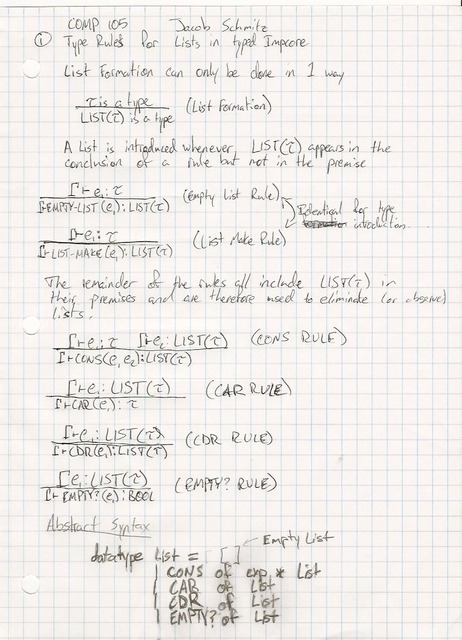 COMP 105 Jacob Schmitz
① Type Rules for Lists in typed Impcore
List Formation can only be done in 1 way
τ is a type
LIST(τ) is a type
(List Formation)
A List is introduced whenever, LIST(τ) appears in the
conclusion of a rule but not in the premise
Γ⊢e₁:τ
Γ⊢EMPTY-LIST(e₁):LIST(τ)
(empty List Rule)
Γ⊢e₁:τ
Γ⊢LIST-MAKE(e₁):LIST(τ)
(List Make Rule)
Identical for type
introduction
The remainder of the rules all include LIST(τ) in
their premises and are therefore used to eliminate (or observe)
lists.
Γ⊢e₁:τ Γ⊢e₂:LIST(τ)
Γ⊢CONS(e₁e₂):LIST(τ)
(CONS RULE)
Γ⊢e₁:LIST(τ)
Γ⊢CAR(e₁):τ
(CAR RULE)
Γ⊢e₁:LIST(τ)
Γ⊢CDR(e₁):LIST(τ)
(CDR RULE)
Γe₁:LIST(τ)
Γ⊢EMPTY?(e₁):BOOL
(EMPTY? RULE)
Abstract Syntax
datatype List = [] ← Empty List
| CONS of exp * List
| CAR of List
| CDR of List
| EMPTY? of List